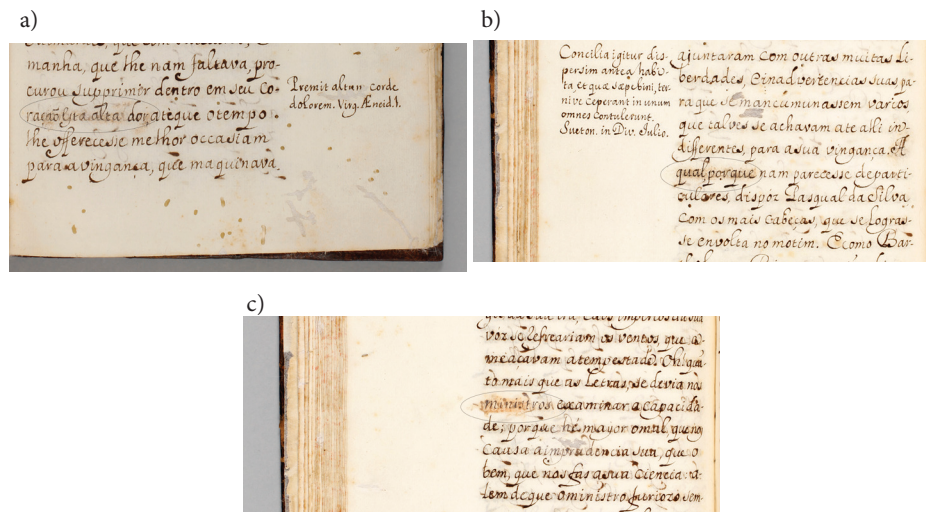 a)
manha, que lhe nam faltava, pro-
curou supprimir dentro em seu Co-
ração esta alta dor, atèque o tempo
lhe offerecesse melhor occasiam
para a vingança, que maquinava.
Premit altun corde
dolorem. Virg. Æneid. 1.
b)
Concilia igitur dis-
persim antea habi-
ta, et quæ sæpe bini, ter-
nive ceperant in unum
omnes contulerunt.
Sueton. in Div. Julio.
ajuntaram com outras muitas Li-
berdades, e inadvertencias suas, pa-
ra que se mancumunassem varios
que talves se achavam ate alli in-
differentes, para a sua vingança. A
qual, porque nam parecesse de parti-
culares, dispoz Pasqual da Silva
com os mais Cabeças, que se logras-
se envolta no motim. E como Bar-
c)
vor se refreariam os ventos, que a-
meaçavam a tempestade. Oh quan-
to mais que as Letras, se devia nos
ministros examinar a capacida-
de; porque hé mayor o mal, que nos
Causa a imprudencia sua, que o
bem, que nos fas a sua Ciencia: a-
lem de que o ministro furiozo sem